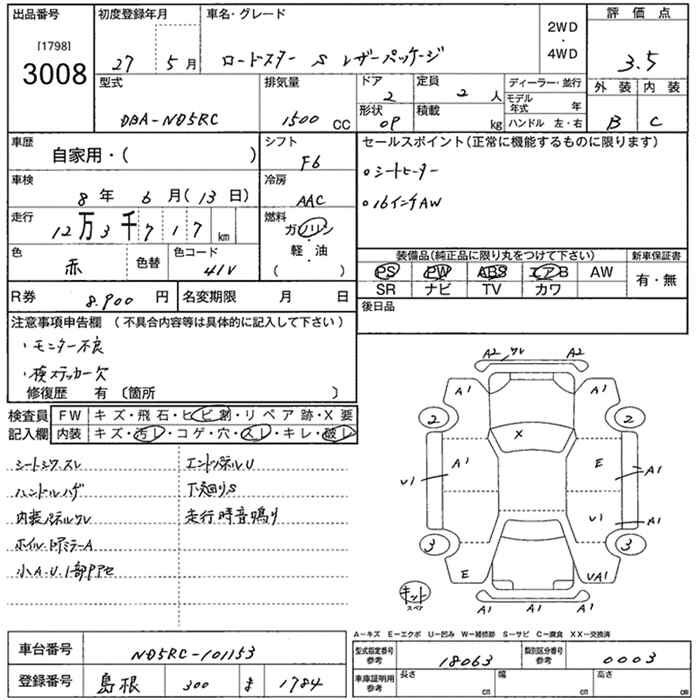 出品番号
[1798]
3008
初度登録年月
27 5月
車名・グレード
ロードスター S レザーパッケージ
2WD
・
4WD
評価点
3.5
外装 内装
B C
型式
DBA-ND5RC
排気量
1500 CC
ドア
2
形状
OP
定員
2 人
積載
kg
ディーラー・並行
モデル年式 年
ハンドル 左・右
車歴
自家用・( )
シフト
F6
車検
8年 6月(13日)
冷房
AAC
走行
12万3千717km
燃料
ガソリン
・
軽・油
( )
色
赤
色替
色コード
41V
R券 8,900円
名変期限 月 日
セールスポイント(正常に機能するものに限ります)
○シートヒーター
○16インチAW
装備品(純正品に限り丸をつけて下さい)
PS PW ABS エアB AW
SR ナビ TV カワ
新車保証書
有・無
後日品
注意事項申告欄 (不具合内容等は具体的に記入して下さい)
・モニター不良
・検ステッカー欠
修復歴 有 〔箇所 〕
検査員記入欄
FW キズ・飛石・ヒビ割・リペア跡・X要
内装 キズ・汚レ・コゲ・穴・スレ・キレ・破レ
シートシワ.スレ
ハンドルハゲ
内装パネルワレ
ホイル.ドアミラーA
小A.U.1部タアセ
エンドパネルU
下廻りS
走行時音鳴り
A2 ワレ A2
A1 A1
2 2
X
A1 E
U1 A1
U1 A1
3 3
E UA1
A1 A1
キット
スペア
A-キズ E-エクボ U-凹み W-補修跡 S-サビ C-腐食 XX-交換済
車台番号 ND5RC-101153
登録番号 島根 300 ま 1784
型式指定番号 参考 18063
類別区分番号 参考 0003
車庫証明用 参考 長さ cm 幅 cm 高さ cm